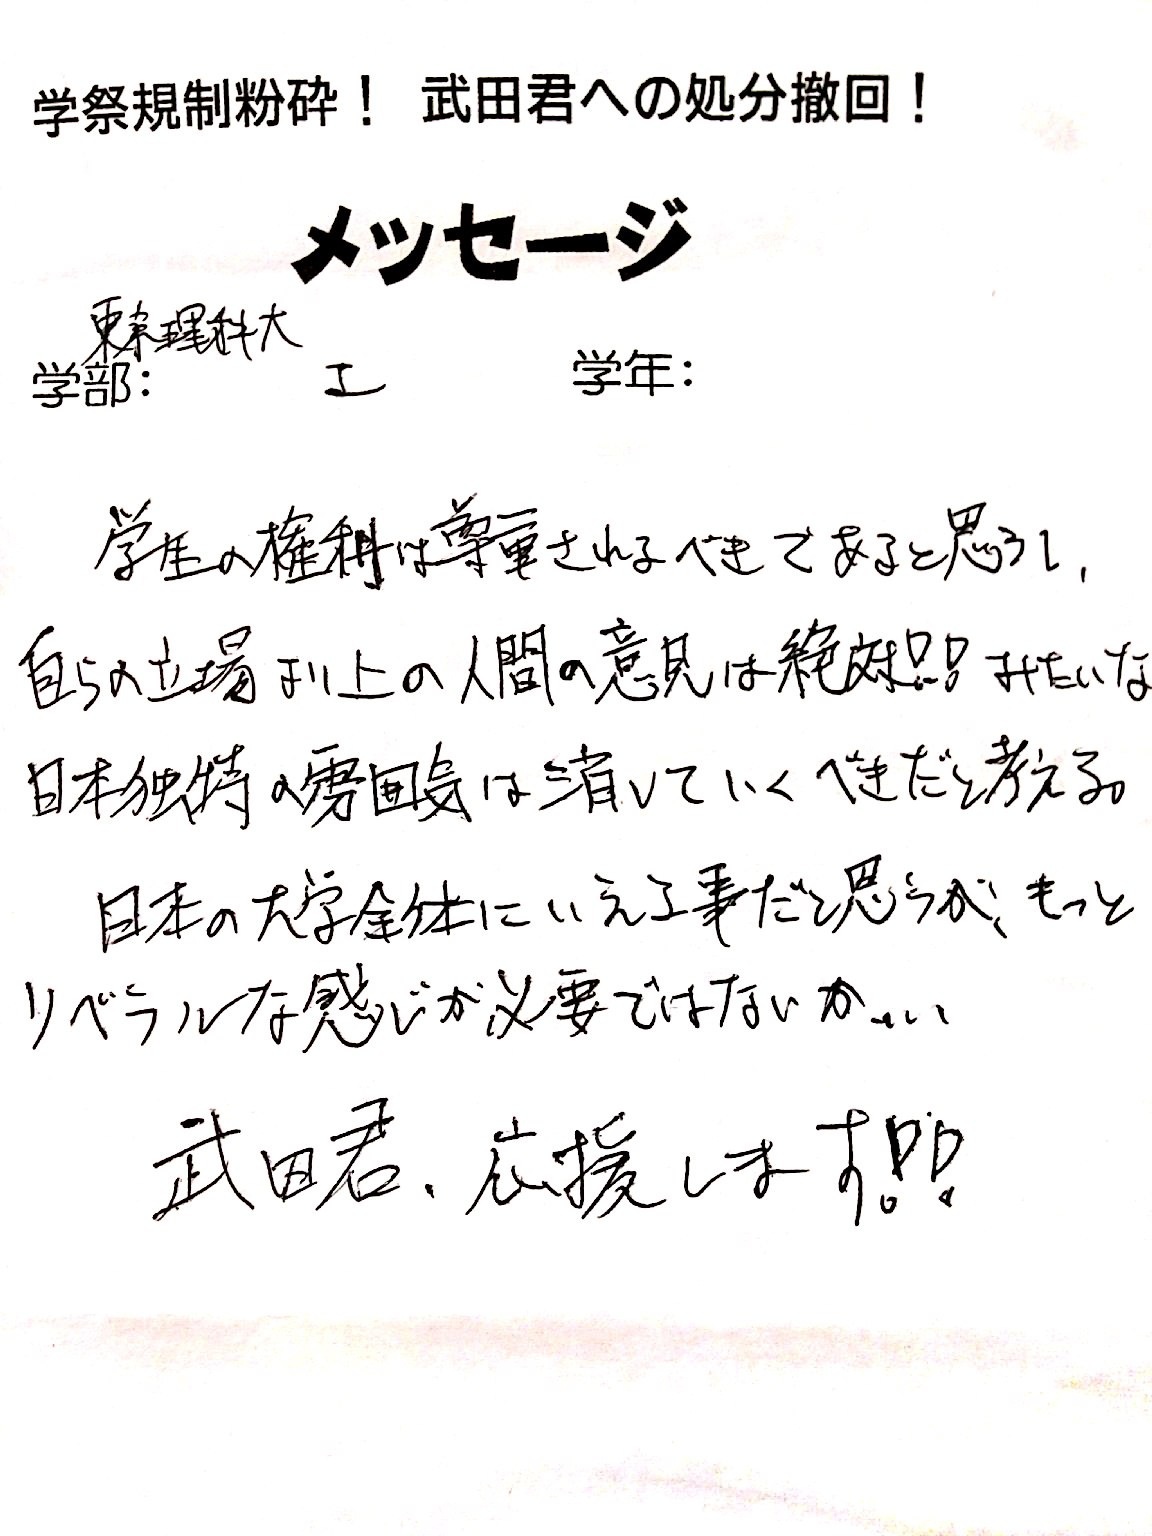 学祭規制粉砕！ 武田君への処分撤回！
メッセージ
東京理科大
学部： 工 学年：
学生の権利は尊重されるべきであると思うし、
自らの立場より上の人間の意見は絶対!! みたいな
日本独特の雰囲気は消していくべきだと考える。
日本の大学全体にいえる事だと思うが、もっと
リベラルな感じが必要ではないか…
武田君、応援します!!